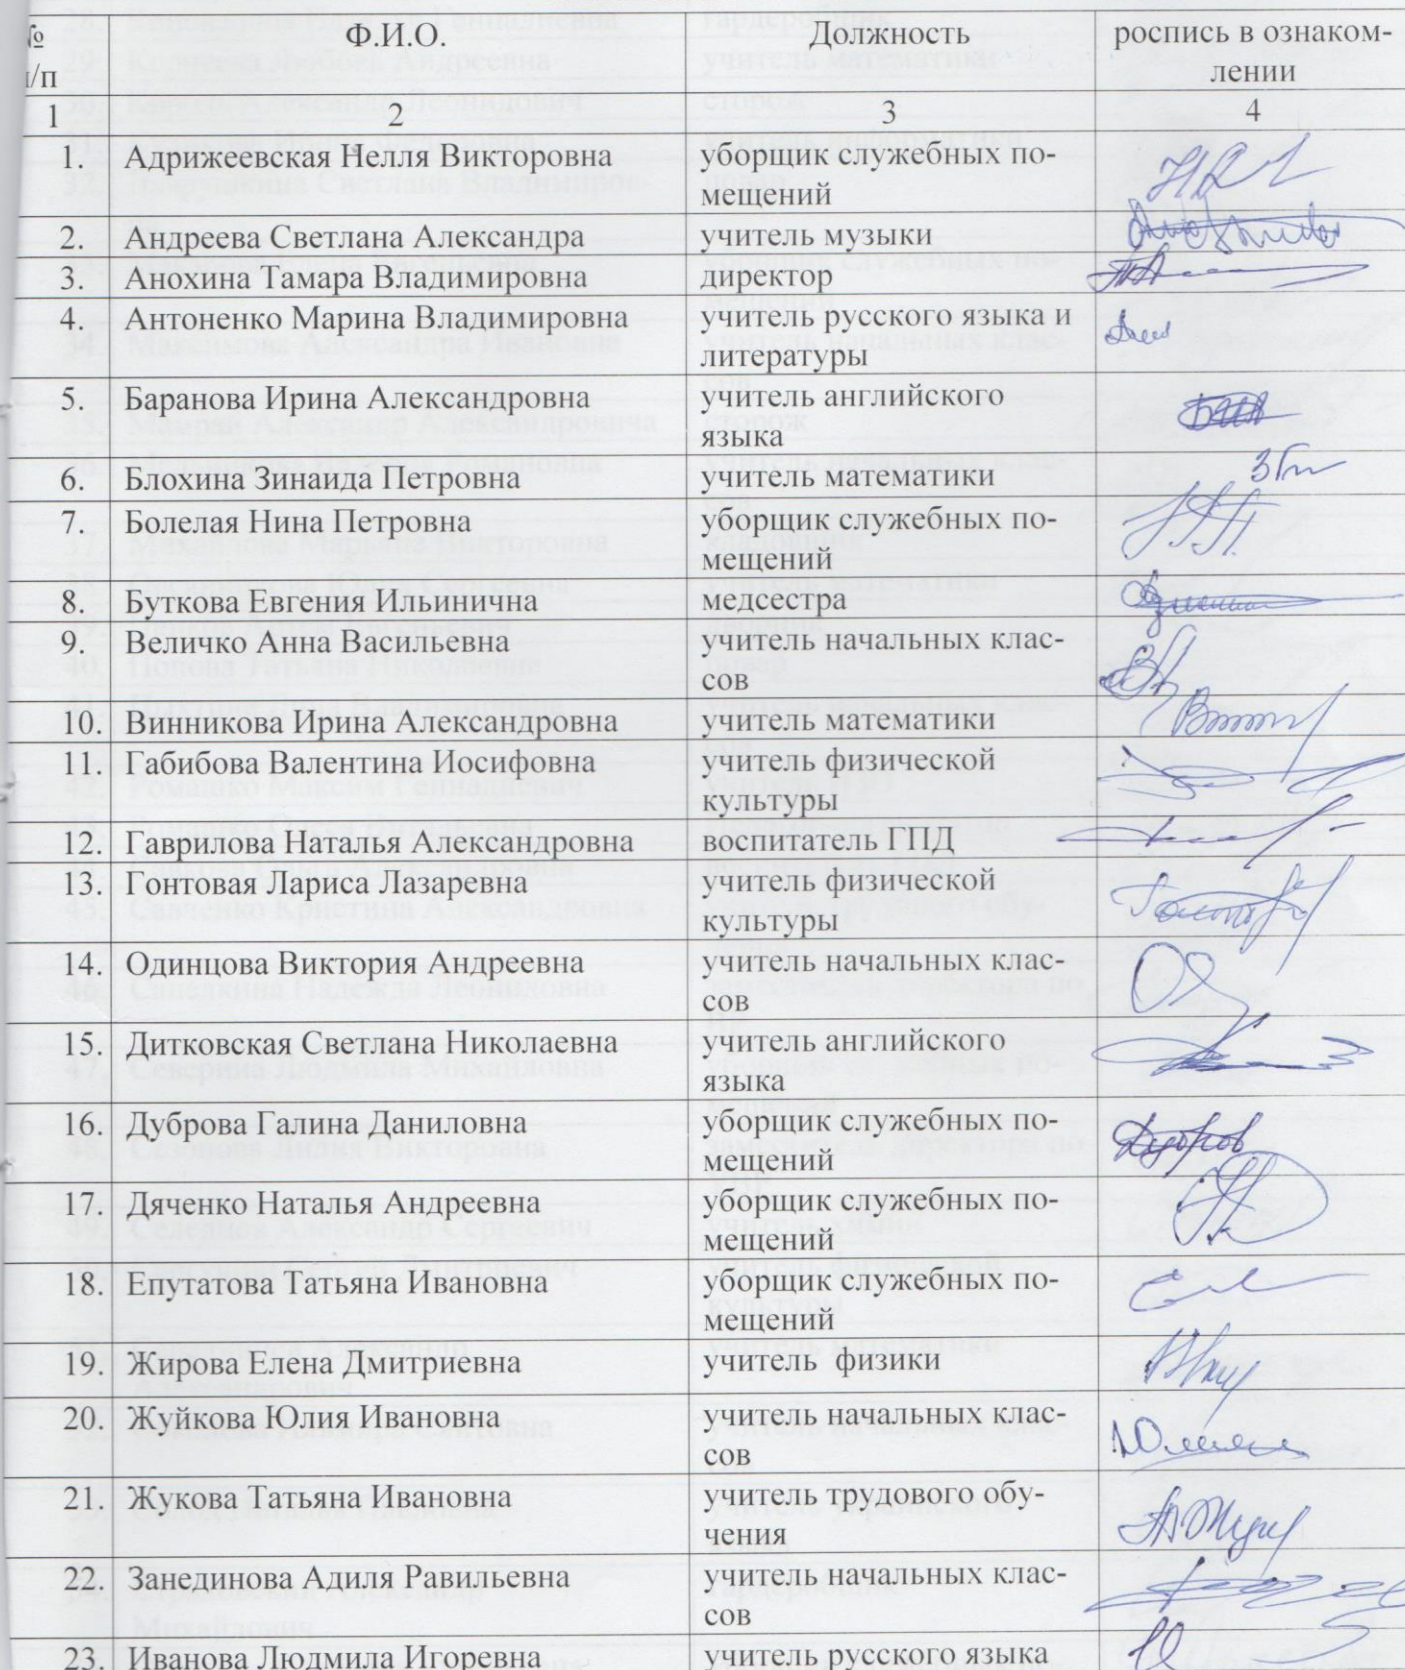 № Ф.И.О. Должность роспись в ознаком-
/п лении
1 2 3 4
1. Адрижеевская Нелля Викторовна уборщик служебных по-
мещений
2. Андреева Светлана Александра учитель музыки
3. Анохина Тамара Владимировна директор
4. Антоненко Марина Владимировна учитель русского языка и
литературы
5. Баранова Ирина Александровна учитель английского
языка
6. Блохина Зинаида Петровна учитель математики
7. Болелая Нина Петровна уборщик служебных по-
мещений
8. Буткова Евгения Ильинична медсестра
9. Величко Анна Васильевна учитель начальных клас-
сов
10. Винникова Ирина Александровна учитель математики
11. Габибова Валентина Иосифовна учитель физической
культуры
12. Гаврилова Наталья Александровна воспитатель ГПД
13. Гонтовая Лариса Лазаревна учитель физической
культуры
14. Одинцова Виктория Андреевна учитель начальных клас-
сов
15. Дитковская Светлана Николаевна учитель английского
языка
16. Дуброва Галина Даниловна уборщик служебных по-
мещений
17. Дяченко Наталья Андреевна уборщик служебных по-
мещений
18. Епутатова Татьяна Ивановна уборщик служебных по-
мещений
19. Жирова Елена Дмитриевна учитель физики
20. Жуйкова Юлия Ивановна учитель начальных клас-
сов
21. Жукова Татьяна Ивановна учитель трудового обу-
чения
22. Занединова Адиля Равильевна учитель начальных клас-
сов
23. Иванова Людмила Игоревна учитель русского языка